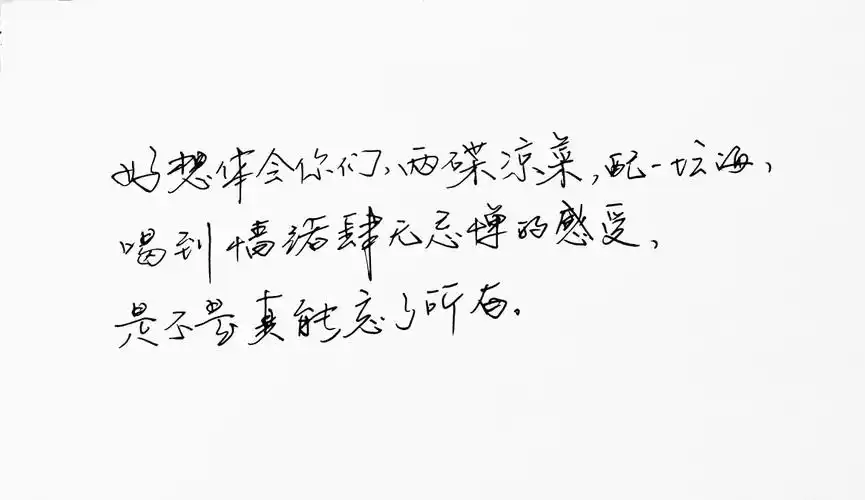 好想体会你们,两碟凉菜,配一坛酒,
喝到情绪肆无忌惮的感受,
是不是真能忘了所有。